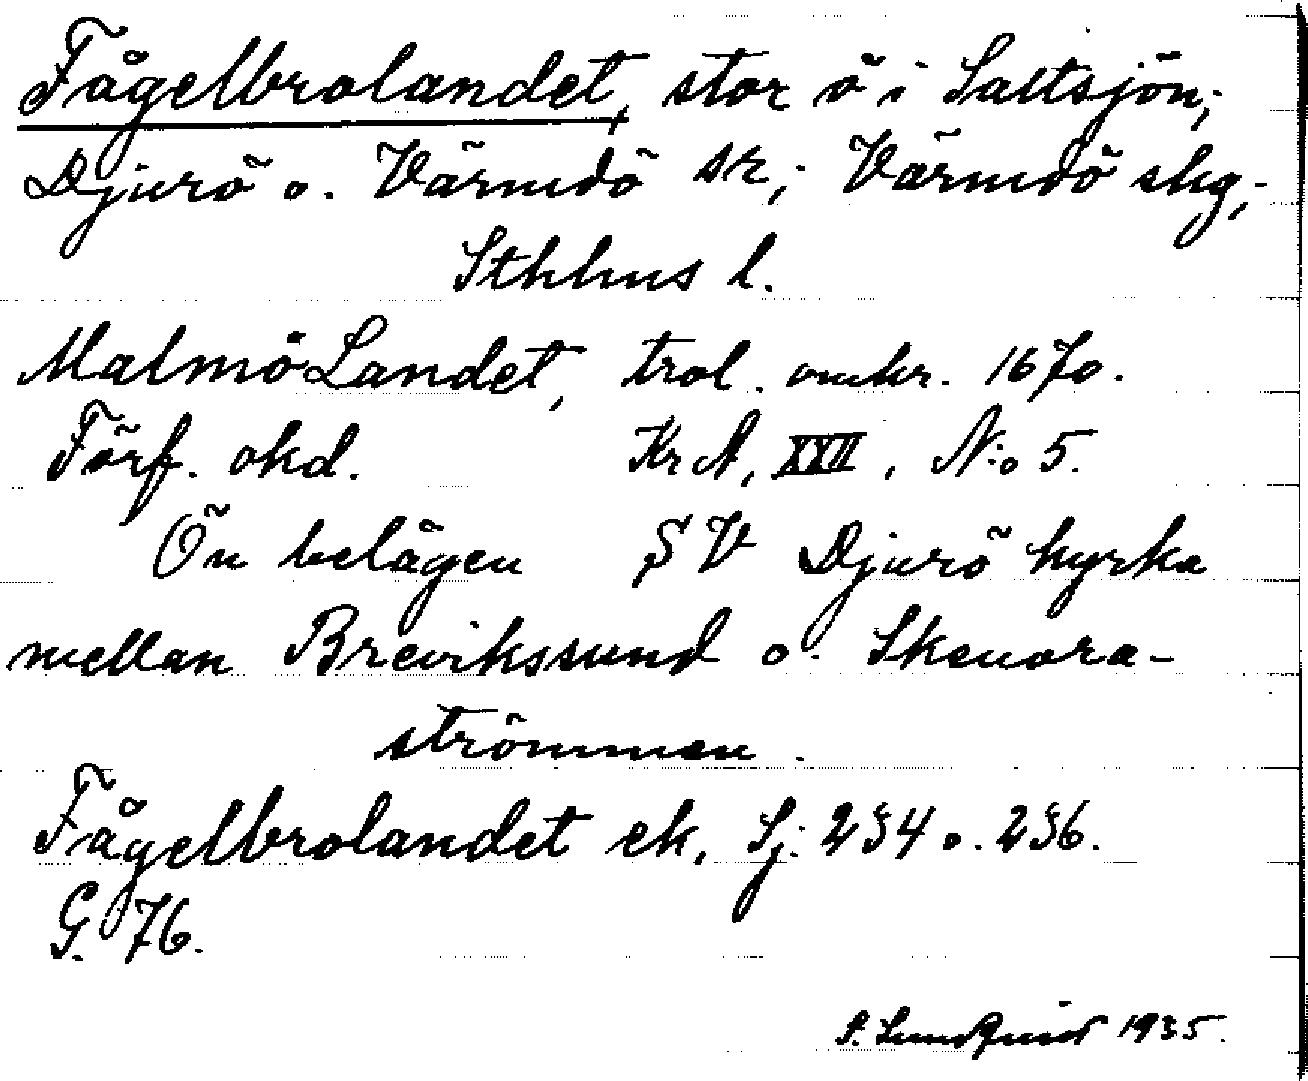 Fågelbrolandet, stor ö i Saltsjön;
Djurö o. Värmdö sn; Värmdö skg,
Sthlms l.
Malmö Landet, trol. omkr. 1670.
Förf. okd. KrA, XXII, N:o 5.
Ön belägen SV Djurö kyrka
mellan Breviksund o. Skenora-
strömmen.
Fågelbrolandet ek. Sj. 234 o. 236.
G. 76.
S. Lundquist 1935.